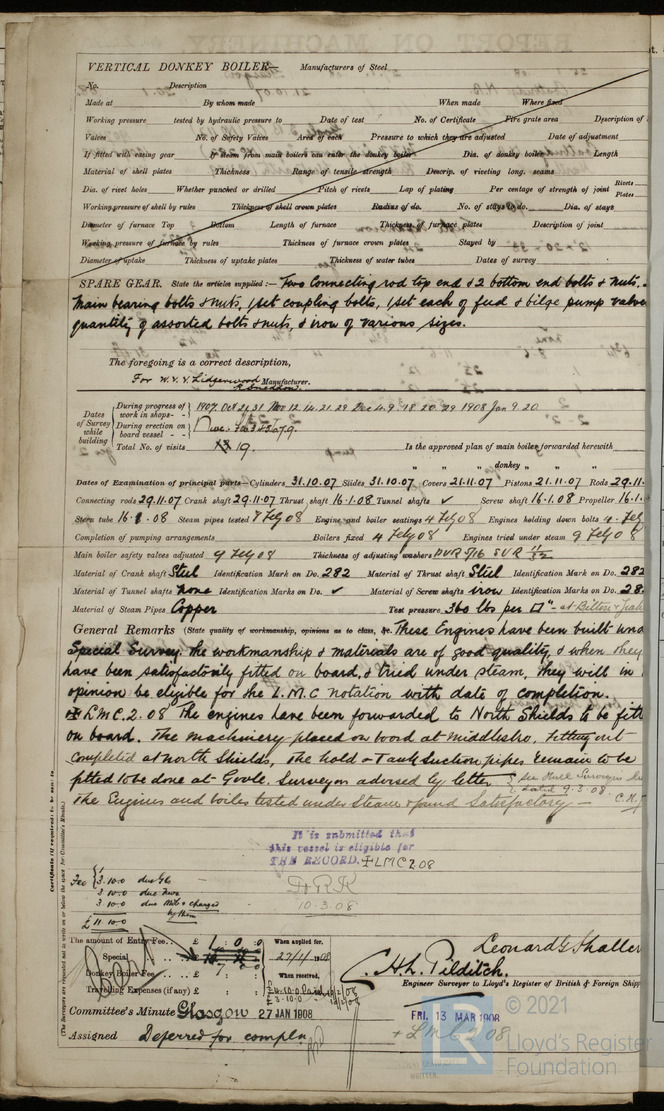 VERTICAL DONKEY BOILER— Manufacturers of Steel
No. Description
Made at By whom made When made Where fixed
Working pressure tested by hydraulic pressure to Date of test No. of Certificate Fire grate area Description of
Valves No. of Safety Valves Area of each Pressure to which they are adjusted Date of adjustment
If fitted with easing gear If steam from main boilers can enter the donkey boiler Dia. of donkey boiler Length
Material of shell plates Thickness Range of tensile strength Descrip. of riveting long. seams
Dia. of rivet holes Whether punched or drilled Pitch of rivets Lap of plating Per centage of strength of joint Rivets Plates
Working pressure of shell by rules Thickness of shell crown plates Radius of do. No. of stays to do. Dia. of stays
Diameter of furnace Top Bottom Length of furnace Thickness of furnace plates Description of joint
Working pressure of furnace by rules Thickness of furnace crown plates Stayed by
Diameter of uptake Thickness of uptake plates Thickness of water tubes Dates of survey
SPARE GEAR. State the articles supplied:— Two Connecting rod top end & 2 bottom end bolts & nuts.
Main bearing bolts & nuts, 1 set coupling bolts, 1 set each of feed & bilge pump valve
quantity of assorted bolts & nuts, & iron of various sizes.
The foregoing is a correct description,
For W. V. V. Lidgerwood Manufacturer.
Dates of Survey while building
During progress of work in shops - - 1907. Oct 21, 31 Nov 12. 14. 21. 29 Dec 4. 9. 18 20. 29 1908 Jan 9. 20
During erection on board vessel - -
Total No. of visits 19. Is the approved plan of main boiler forwarded herewith
" " " donkey " " "
Dates of Examination of principal parts—Cylinders 31.10.07 Slides 31.10.07 Covers 21.11.07 Pistons 21.11.07 Rods 29.11.
Connecting rods 29.11.07 Crank shaft 29.11.07 Thrust shaft 16.1.08 Tunnel shafts ✓ Screw shaft 16.1.08 Propeller 16.1.
Stern tube 16.1.08 Steam pipes tested 7 Feby 08 Engine and boiler seatings 4 Feby 08 Engines holding down bolts 4 Feby
Completion of pumping arrangements Boilers fixed 4 Feby 08 Engines tried under steam 9 Feby 08
Main boiler safety valves adjusted 9 Feby 08 Thickness of adjusting washers
Material of Crank shaft Steel Identification Mark on Do. 282 Material of Thrust shaft Steel Identification Mark on Do. 282
Material of Tunnel shafts none Identification Marks on Do. ✓ Material of Screw shafts iron Identification Marks on Do. 28
Material of Steam Pipes Copper Test pressure 360 lbs per □"
General Remarks (State quality of workmanship, opinions as to class, &c. These Engines have been built und
Special Survey the workmanship & materials are of good quality, & when they
have been satisfactorily fitted on board, & tried under steam, they will in
opinion be eligible for the L.M.C notation with date of completion.
✠ LMC. 2. 08 The engines have been forwarded to North Shields to be fitt
on board. The machinery placed on board at Middlesbro. Fitting out
completed at North Shields, The hold & Tank Suction pipes remain to be
fitted to be done at Goole. Surveyor advised by letter. see Hull Surveyors
dated 9.3.08.
The Engines and boiler tested under Steam & found Satisfactory—
It is submitted that
this vessel is eligible for
THE RECORD. ✠LMC 2 08
10.3.08
Certificate (if required) to be sent to
(The Surveyors are requested not to write on or below the space for Committee's Minute.)
Fee 3.10.0 due Gls
3 10.0
3 10.0
£11 10.0
The amount of Entry Fee. . £ 1 : 0 : 0 When applied for,
Special . . £
Donkey Boiler Fee . . £ When received,
Travelling Expenses (if any) £
Leonard G Shallcr
C. H. L. Pilditch.
Engineer Surveyor to Lloyd's Register of British & Foreign Shipp
Committee's Minute Glasgow 27 JAN 1908 FRI. 13 MAR 1908
Assigned Deferred for compln + LMC 2 08
© 2021
Lloyd's Register
Foundation